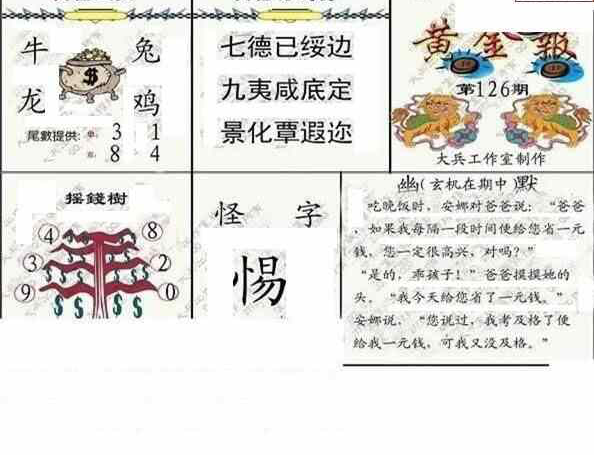 牛 兔
龙 鸡
尾數提供: 单: 3 1
8 4
七德已绥边
九夷咸底定
景化覃遐迩
黄金報
第126期
大兵工作室制作
摇錢樹
4 8
3 2
9 0
怪 字
惕
幽(玄机在期中)默
吃晚饭时,安娜对爸爸说:“爸爸
,如果我每隔一段时间使给您省一元
钱,您一定很高兴,对吗?”
“是的,乖孩子!”爸爸摸摸她的
头。“我今天给您省了一元钱。”
安娜说,“您说过,我考及格了便
给我一元钱,可我又没及格。”